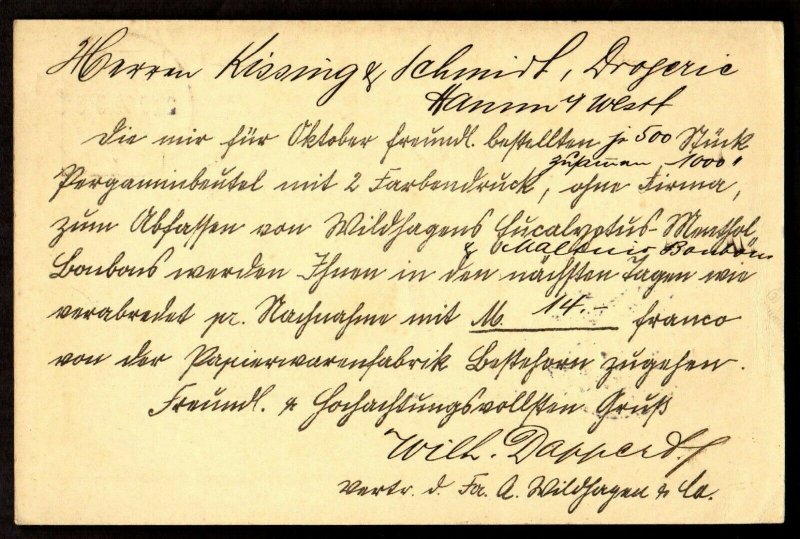 Herren Kissing & Schmidt, Drogerie
Hamm i/ Westf
Die mir für Oktober freundl. bestellten je 500 Stück
zusammen „1000“
Pergaminbeutel mit 2 Farbendruck, ohne Firma,
zum Abfassen von Wildhagens Eucalyptus-Menthol
& Bonbons
Bonbons werden Ihnen in den nächsten Tagen wie
verabredet pr. Nachnahme mit M. 14.- franco
von der Papierwarenfabrik Bestehorn zugehen.
Freundl. & Hochachtungsvollsten Gruß
Wilh. Dappert
Vertr. d. Fa. A. Wildhagen & Co.